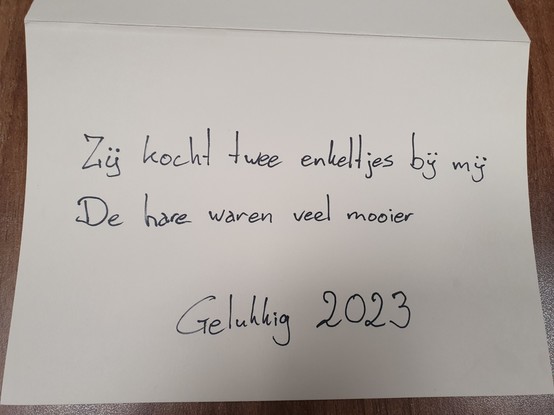 Zij kocht twee enkeltjes bij mij
De hare waren veel mooier
Gelukkig 2023